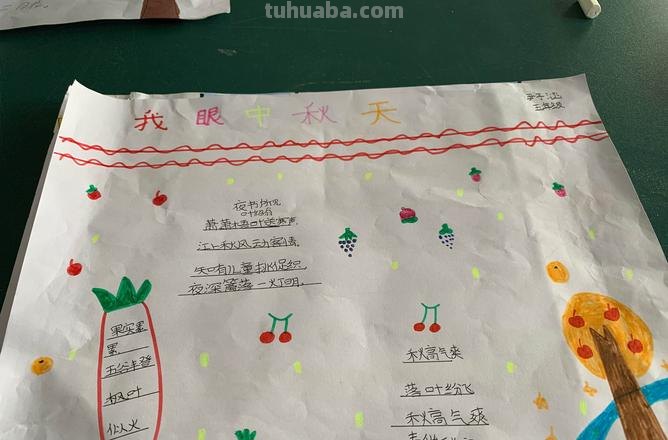 tuhuaba.com
我眼中秋天
五年级
夜书所见
叶绍翁
萧萧梧叶送寒声
江上秋风动客情
知有儿童挑促织
夜深篱落一灯明
果实累
累
五谷丰登
枫叶
似火
秋高气爽
落叶纷飞
秋高气爽